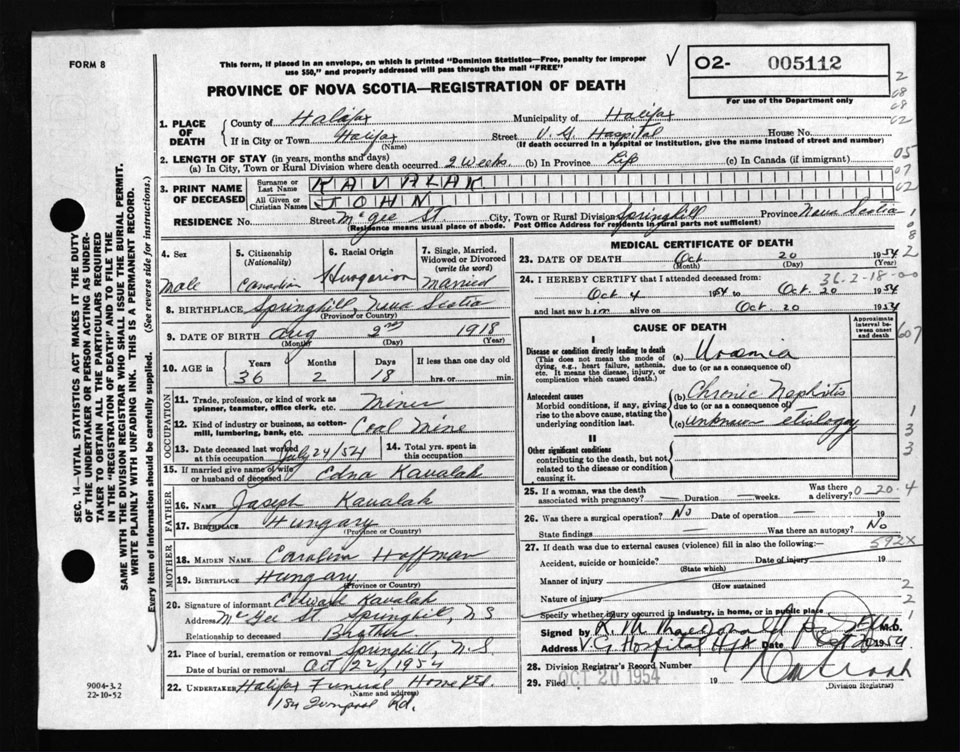 FORM 8
This form, if placed in an envelope, on which is printed "Dominion Statistics—Free, penalty for improper
use $50," and properly addressed will pass through the mail "FREE"
PROVINCE OF NOVA SCOTIA—REGISTRATION OF DEATH
✓
O2- 005112
For use of the Department only
2
08
08
02
1. PLACE OF DEATH
County of Halifax
Municipality of Halifax
If in City or Town Halifax
(Name)
Street V. G. Hospital House No.
(If death occurred in a hospital or institution, give the name instead of street and number)
2. LENGTH OF STAY (in years, months and days)
(a) In City, Town or Rural Division where death occurred 2 Weeks. (b) In Province Life (c) In Canada (if immigrant)
05
07
02
3. PRINT NAME OF DECEASED
Surname or Last Name KAVALAK
All Given or Christian Names JOHN
RESIDENCE No. Street McGee St. City, Town or Rural Division Springhill Province Nova Scotia
(Residence means usual place of abode. Post Office Address for residents in rural parts not sufficient)
1
0
8
2
4. Sex
Male
5. Citizenship
(Nationality)
Canadian
6. Racial Origin
Hungarian
7. Single, Married, Widowed or Divorced
(write the word)
Married
8. BIRTHPLACE Springhill, Nova Scotia
(Province or Country)
9. DATE OF BIRTH Aug 2nd 1918
(Month) (Day) (Year)
10. AGE in
Years Months Days If less than one day old
36 2 18 hrs. or min.
OCCUPATION
11. Trade, profession, or kind of work as
spinner, teamster, office clerk, etc. Miner
12. Kind of industry or business, as cotton-
mill, lumbering, bank, etc. Coal Mine
13. Date deceased last worked
at this occupation July 24/54
14. Total yrs. spent in
this occupation
15. If married give name of wife
or husband of deceased Edna Kavalak
FATHER
16. Name Joseph Kavalak
17. Birthplace Hungary
(Province or Country)
MOTHER
18. MAIDEN NAME Hoffman
19. BIRTHPLACE Hungary
(Province or Country)
20. Signature of informant Edward Kavalak
Address McGee St Springhill, N S
Relationship to deceased Brother
21. Place of burial, cremation or removal Springhill, N.S.
Date of burial or removal Oct 22/1954
22. UNDERTAKER Halifax Funeral Home Ltd.
(Name and address)
184 Rd.
MEDICAL CERTIFICATE OF DEATH
23. DATE OF DEATH Oct. 20 1954
(Month) (Day) (Year)
36-2-18-00
24. I HEREBY CERTIFY that I attended deceased from:
Oct 4 1954 to Oct 20 1954
and last saw him alive on Oct. 20 1954
CAUSE OF DEATH
Approximate interval between onset and death
607
I
Disease or condition directly leading to death
(This does not mean the mode of
dying, e.g., heart failure, asthenia,
etc. It means the disease, injury, or
complication which caused death.)
(a) Uraemia
due to (or as a consequence of)
Antecedent causes
Morbid conditions, if any, giving
rise to the above cause, stating the
underlying condition last.
(b) Chronic Nephritis
due to (or as a consequence of)
(c) unknown etiology
1
3
3
II
Other significant conditions
contributing to the death, but not
related to the disease or condition
causing it.
25. If a woman, was the death
associated with pregnancy? — Duration — weeks. Was there a delivery?
0-20-4
26. Was there a surgical operation? No Date of operation — 19
State findings — Was there an autopsy? No
592X
27. If death was due to external causes (violence) fill in also the following:—
Accident, suicide or homicide? Date of injury 19
(State which)
Manner of injury
(How sustained)
2
Nature of injury
2
Specify whether injury occurred in industry, in home, or in public place
1
Signed by R. M. MacDonald M.D.
Address V. G Hospital Hfx Date 1954
28. Division Registrar's Record Number
29. Filed OCT 20 1954 19
(Division Registrar)
SEC. 14—VITAL STATISTICS ACT MAKES IT THE DUTY
OF THE UNDERTAKER OR PERSON ACTING AS UNDER-
TAKER TO OBTAIN ALL THE PARTICULARS REQUIRED
IN THE "REGISTRATION OF DEATH" AND TO FILE THE
SAME WITH THE DIVISION REGISTRAR WHO SHALL ISSUE THE BURIAL PERMIT.
WRITE PLAINLY WITH UNFADING INK. THIS IS A PERMANENT RECORD.
Every item of information should be carefully supplied. (See reverse side for instructions.)
9004-3.2
22-10-52